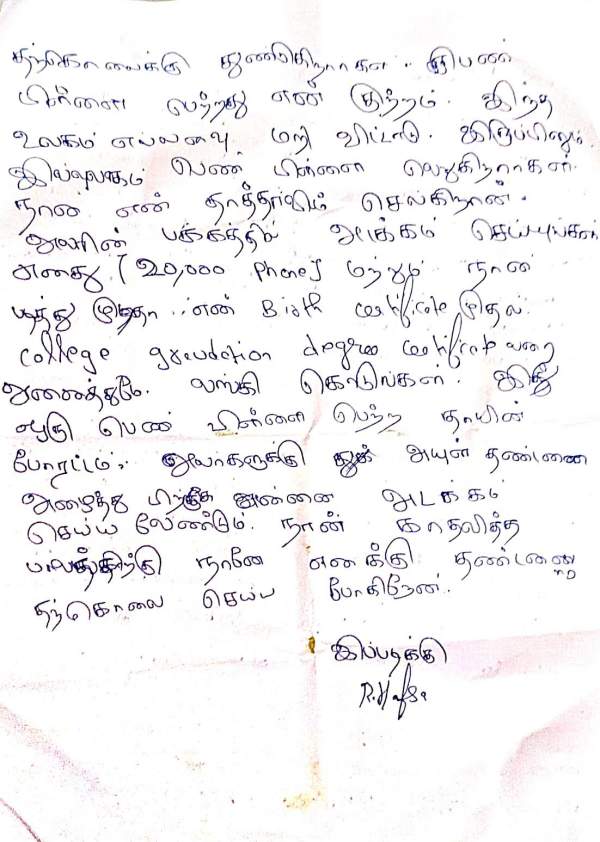 தற்கொலைக்கு துண்டுகிறார்கள். இபெண்
பிள்ளை பெற்றது என் குற்றம். இந்த
உலகம் எவ்வளவு மறி விட்டாடு. இருப்பினும்
இவ்வுலகம் பெண் பிள்ளை வெறுகிறார்கள்.
நான் என் தாத்தாவிடம் செல்கிறான்.
அவரின் பக்கத்தில் அடக்கம் செய்யுங்கள்
எனது [20,000 Phone] மற்றும் நான்
படித்து முடித்தா என் Birth certificate முதல்
college graudation degree certificate வரை
அனைத்துமே. வாங்கி கொடுங்கள். இது
ஒரு பெண் பிள்ளை பெற்ற தாயின்
போரட்டம். அவர்களுக்கு அயுள் தண்டனை
அழைத்து பிறகே என்னை அடக்கம்
செய்ய வேண்டும். நான் காதலித்த
நானே எனக்கு தண்டனை
தற்கொலை செய்ய போகிறேன்.
இப்படிக்கு
R.Hafsa